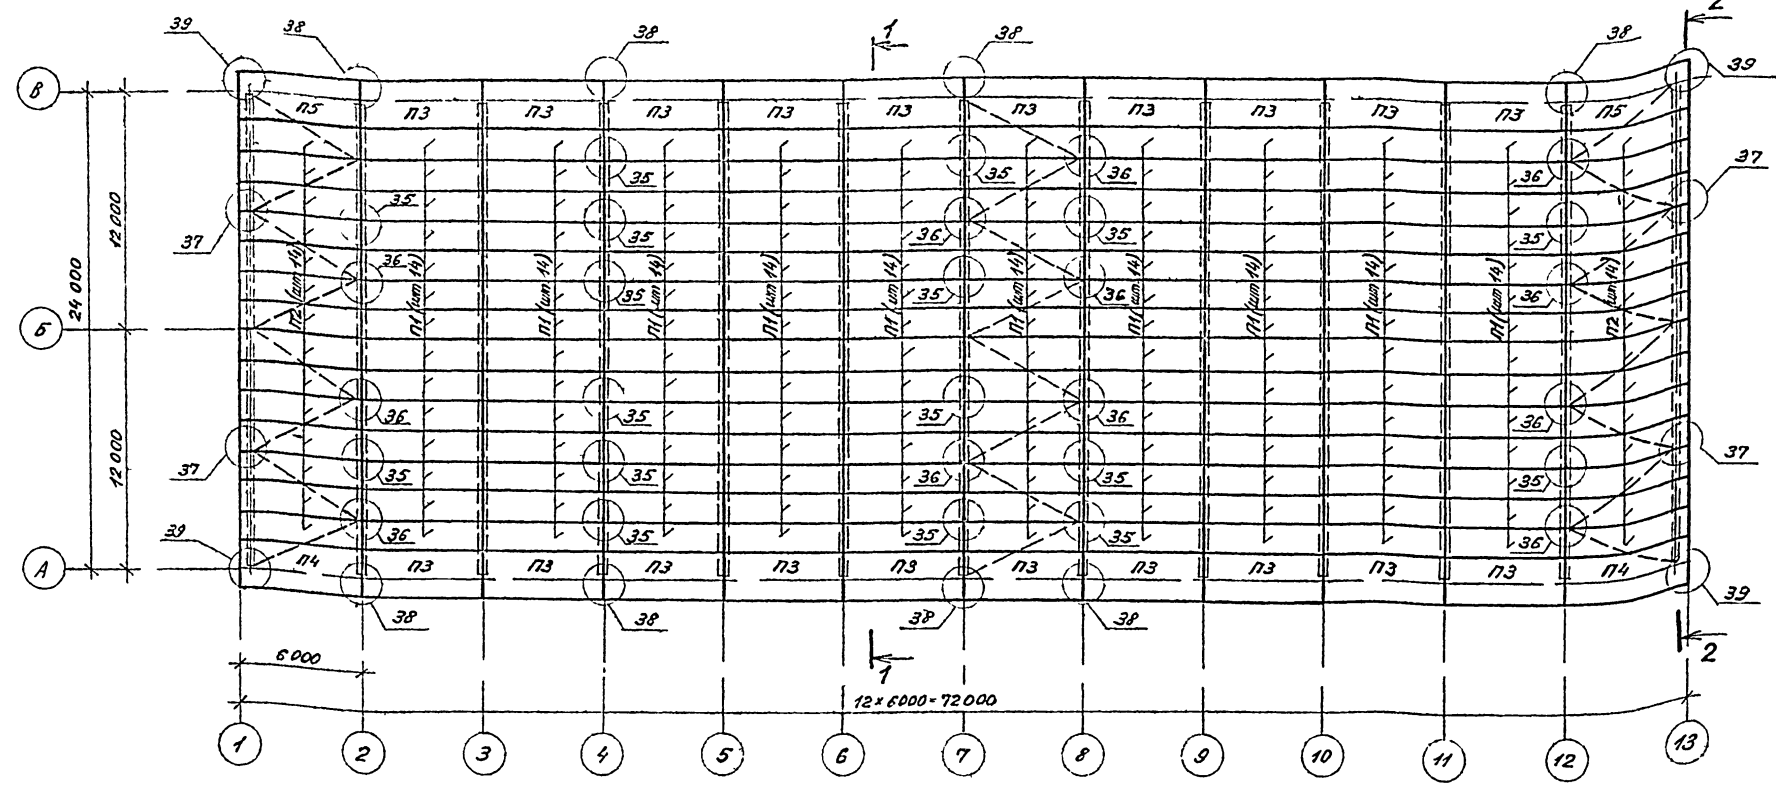 39 38 38 1 38 38 2 39
В
П5 П3 П3 П3 П3 П3 П3 П3 П3 П3 П3 П5
35 35 36 36 37
35 35 36 35 35
37
36 35 35 36 36
12 000
24 000
П2 (шт 14) П1 (шт 14) П1 (шт 14) П1 (шт 14) П1 (шт 14) П1 (шт 14) П1 (шт 14) П1 (шт 14) П1 (шт 14) П1 (шт 14) П1 (шт 14) П2 (шт 14)
Б
12 000
36 35 35 36 36
37 35 35 36 35 35 37
39 36 35 35 35 36
А
П4 П3 П3 П3 П3 П3 П3 П3 П3 П3 П4
39
38 38 38 38
6000 1 2
12 х 6000 = 72 000
1 2 3 4 5 6 7 8 9 10 11 12 13